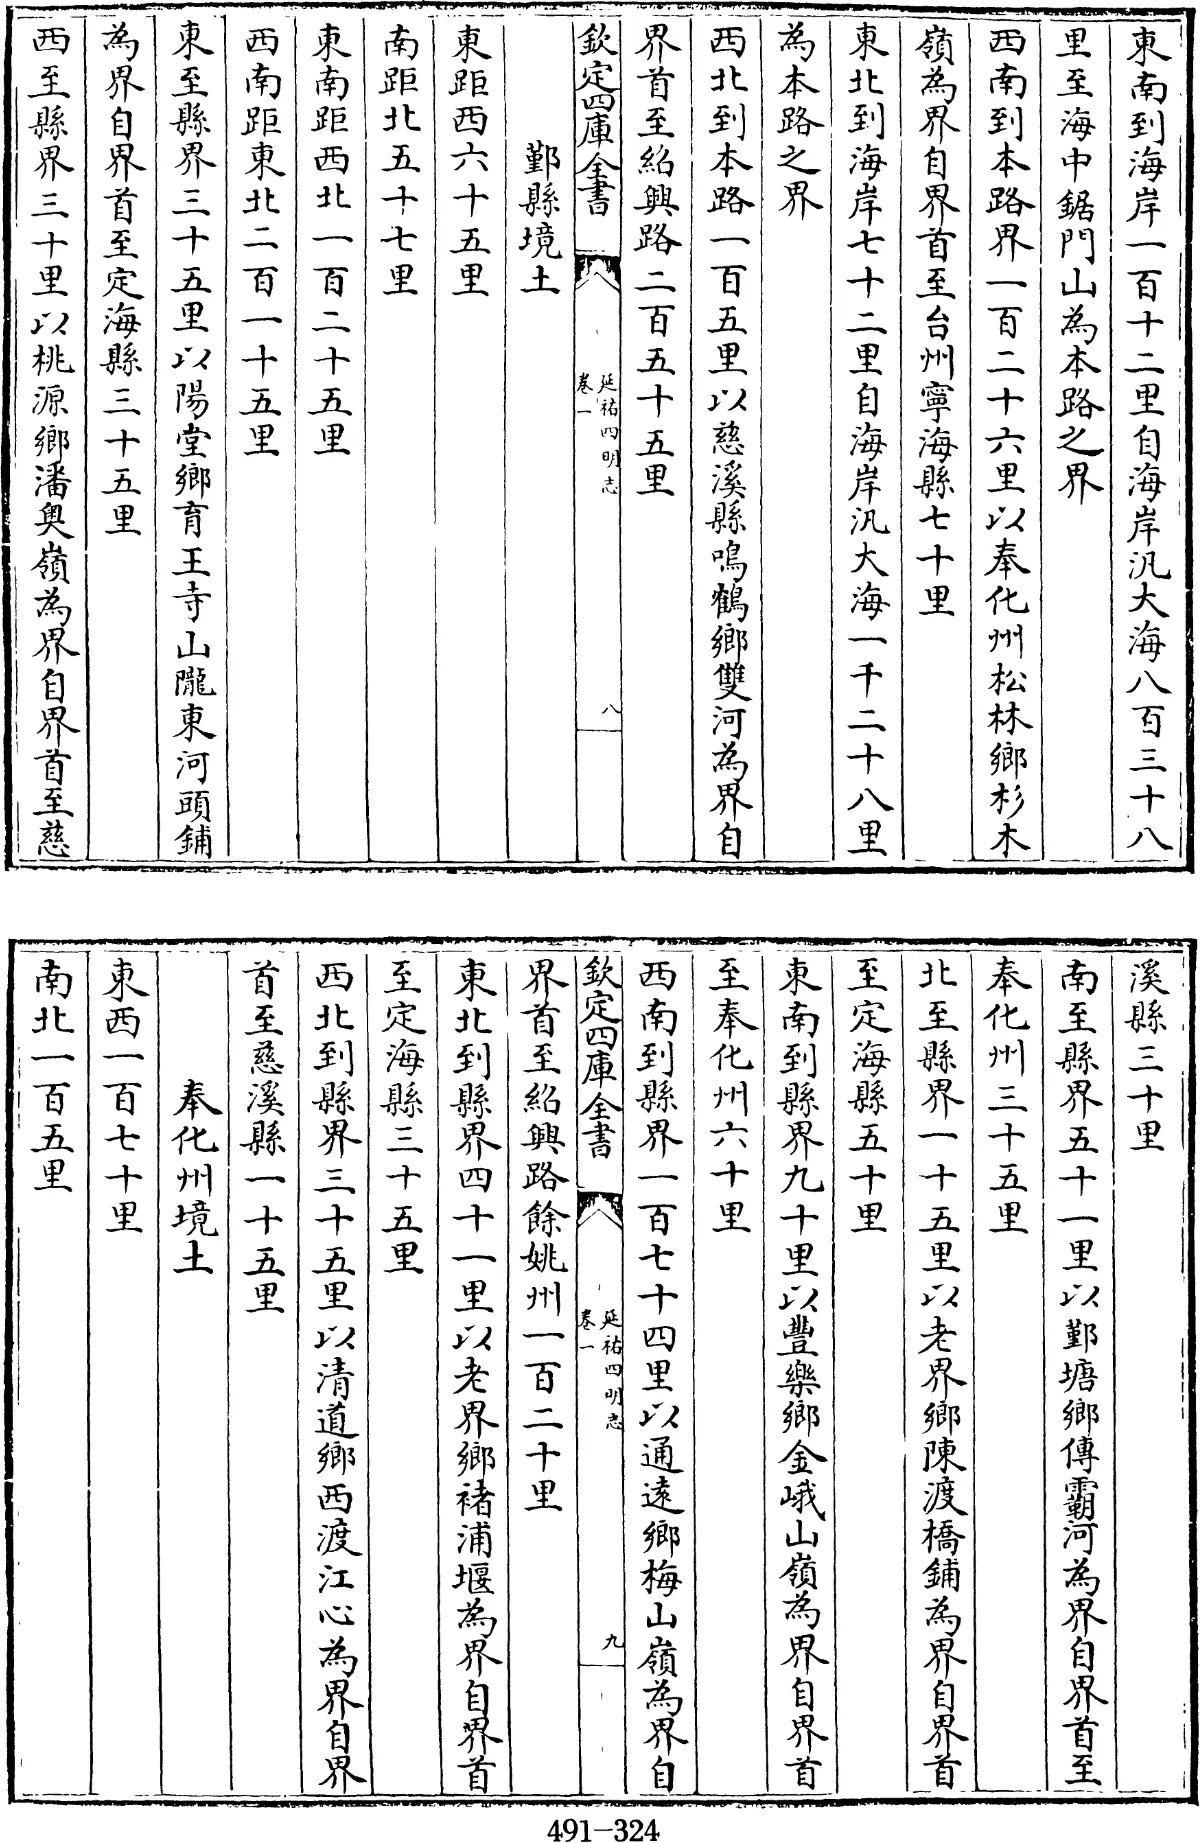 東南到海岸一百十二里自海岸汎大海八百三十八
里至海中鋸門山為本路之界
西南到本路界一百二十六里以奉化州松林鄉杉木
嶺為界自界首至台州寧海縣七十里
東北到海岸七十二里自海岸汎大海一千二十八里
為本路之界
西北到本路一百五里以慈溪縣鳴鶴鄉雙河為界自
界首至紹興路二百五十五里
欽定四庫全書
延祐四明志
卷一
八
鄞縣境土
東距西六十五里
南距北五十七里
東南距西北一百二十五里
西南距東北二百一十五里
東至縣界三十五里以陽堂鄉育王寺山隴東河頭鋪
為界自界首至定海縣三十五里
西至縣界三十里以桃源鄉潘奧嶺為界自界首至慈
溪縣三十里
南至縣界五十一里以鄞塘鄉傅霸河為界自界首至
奉化州三十五里
北至縣界一十五里以老界鄉陳渡橋鋪為界自界首
至定海縣五十里
東南到縣界九十里以豐樂鄉金峨山嶺為界自界首
至奉化州六十里
西南到縣界一百七十四里以通遠鄉梅山嶺為界自
欽定四庫全書
延祐四明志
卷一
九
界首至紹興路餘姚州一百二十里
東北到縣界四十一里以老界鄉褚浦堰為界自界首
至定海縣三十五里
西北到縣界三十五里以清道鄉西渡江心為界自界
首至慈溪縣一十五里
奉化州境土
東西一百七十里
南北一百五里
491-324